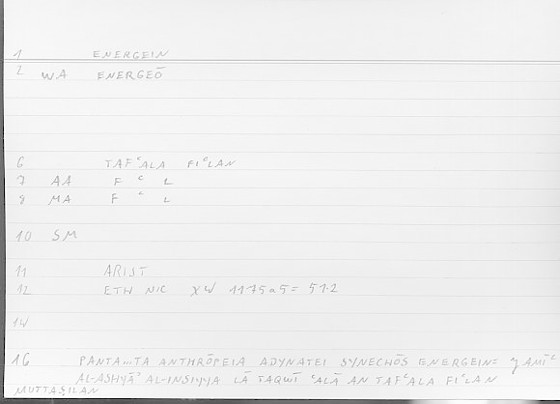 1 ENERGEIN
2 WA ENERGEŌ
6 TAFʿALA FIʿLAN
7 AA F ʿ L
8 MA F ʿ L
10 SM
11 ARIST
12 ETH NIC XW 1175a5= 51.2
1W
16 PANTA...TA ANTHRŌPEIA ADYNATEI SYNECHŌS ENERGEIN= ǧAMĪʿ
AL-ASHYĀʾ AL-INSIYYA LĀ TAQWĪ ʿALĀ AN TAFʿALA FIʿLAN
MUTTAṢILAN